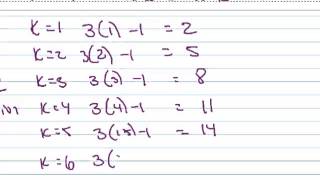 K=1 3(1)-1 = 2
K=2 3(2)-1 = 5
K=3 3(3)-1 = 8
K=4 3(4)-1 = 11
K=5 3(5)-1 = 14
K=6 3(